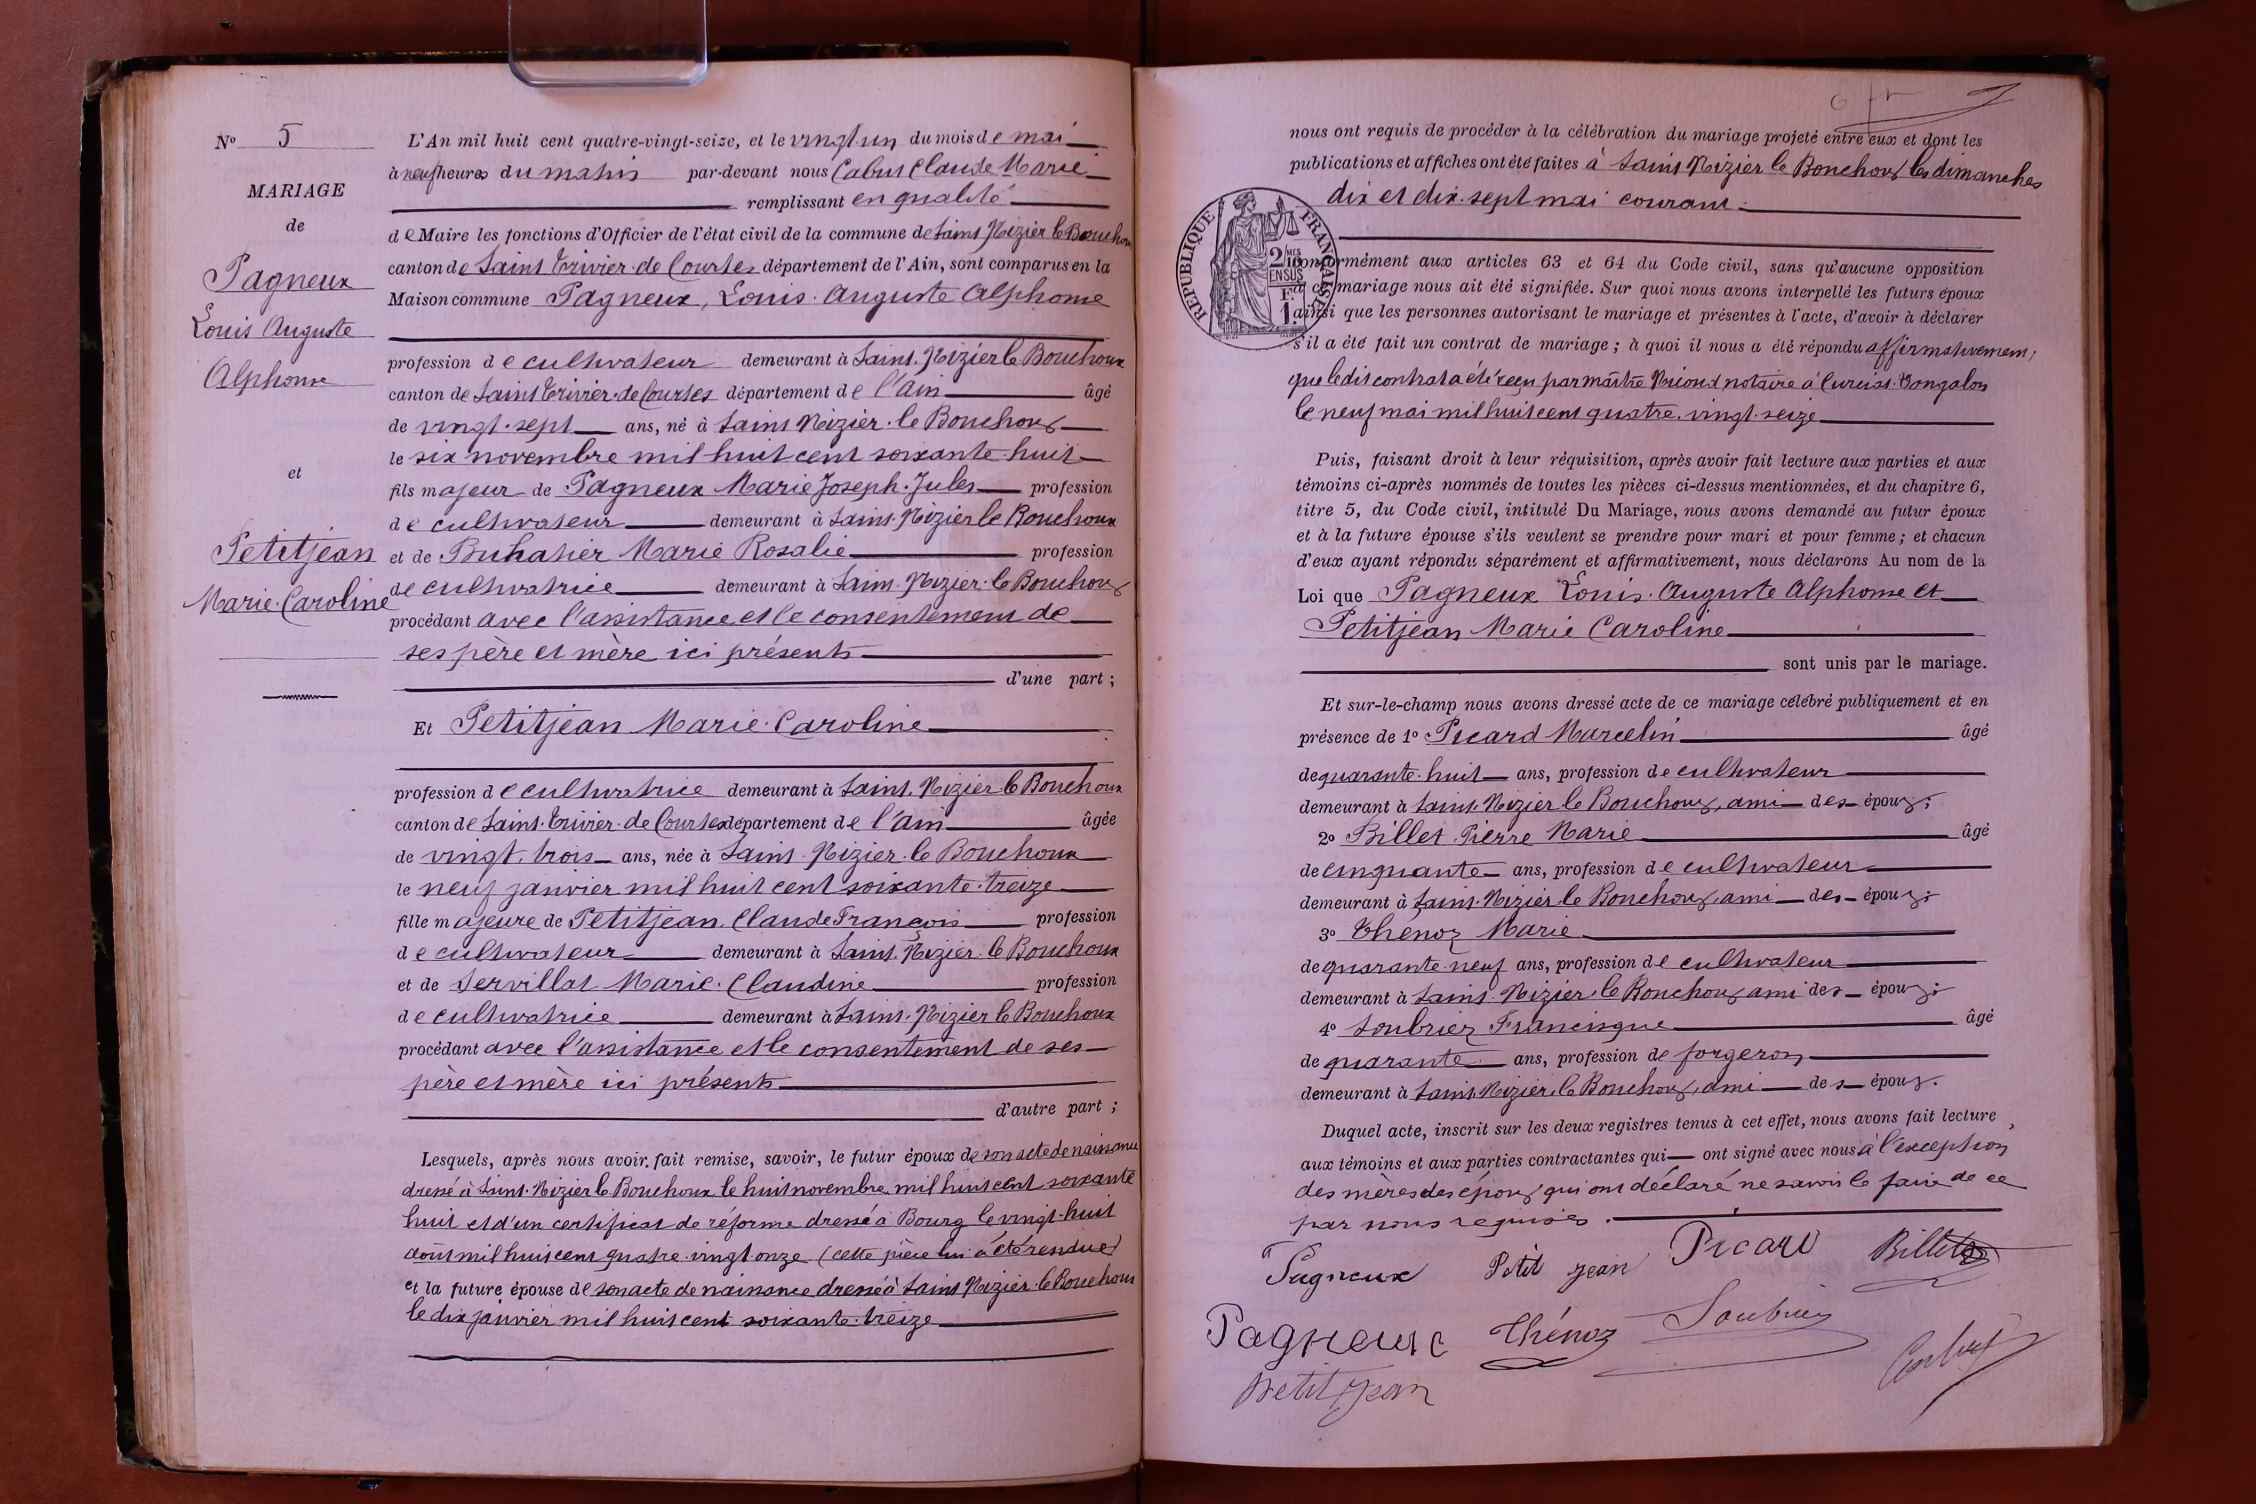 N° 5
MARIAGE
de
Pagneux
Louis Auguste
Alphonse
et
Petitjean
Marie-Caroline
L'An mil huit cent quatre-vingt-seize, et le vingt-un du mois de mai
à neuf heures du matin par-devant nous Cabut Claude Marie
remplissant en qualité
de Maire les fonctions d'Officier de l'état civil de la commune de Saint Nizier le Bouchoux
canton de Saint Trivier-de Courtes département de l'Ain, sont comparus en la
Maison commune Pagneux, Louis-Auguste Alphonse
profession de cultivateur demeurant à Saint-Nizier le Bouchoux
canton de Saint Trivier-de Courtes département de l'Ain âgé
de vingt-sept ans, né à Saint Nizier-le Bouchoux
le six novembre mil huit cent soixante-huit
fils majeur de Pagneux Marie Joseph-Jules profession
de cultivateur demeurant à Saint-Nizier le Bouchoux
et de Buhatier Marie Rosalie profession
de cultivatrice demeurant à Saint-Nizier-le Bouchoux
procédant avec l'assistance et le consentement de
ses père et mère ici présents
d'une part ;
Et Petitjean Marie-Caroline
profession de cultivatrice demeurant à Saint-Nizier le Bouchoux
canton de Saint-Trivier-de Courtes département de l'Ain âgée
de vingt-trois ans, née à Saint-Nizier-le Bouchoux
le neuf janvier mil huit cent soixante-treize
fille majeure de Petitjean Claude François profession
de cultivateur demeurant à Saint-Nizier-le Bouchoux
et de Servillat Marie-Claudine profession
de cultivatrice demeurant à Saint-Nizier le Bouchoux
procédant avec l'assistance et le consentement de ses
père et mère ici présents
d'autre part ;
Lesquels, après nous avoir fait remise, savoir, le futur époux de son acte de naissance
dressé à Saint-Nizier le Bouchoux le huit novembre mil huit cent soixante
huit et d'un certificat de réforme dressé à Bourg le vingt-huit
août mil huit cent quatre-vingt-onze (cette pièce lui a été rendue)
et la future épouse de son acte de naissance dressé à Saint Nizier-le Bouchoux
le dix janvier mil huit cent soixante-treize
6 fr
nous ont requis de procéder à la célébration du mariage projeté entre eux et dont les
publications et affiches ont été faites à Saint Nizier le Bouchoux les dimanches
dix et dix-sept mai courant
RÉPUBLIQUE FRANÇAISE
2/10MES
EN SUS
F.
1.
conformément aux articles 63 et 64 du Code civil, sans qu'aucune opposition
à ce mariage nous ait été signifiée. Sur quoi nous avons interpellé les futurs époux
ainsi que les personnes autorisant le mariage et présentes à l'acte, d'avoir à déclarer
s'il a été fait un contrat de mariage ; à quoi il nous a été répondu affirmativement,
que ledit contrat a été reçu par maître notaire à Curciat-Dongalon
le neuf mai mil huit cent quatre-vingt-seize
Puis, faisant droit à leur réquisition, après avoir fait lecture aux parties et aux
témoins ci-après nommés de toutes les pièces ci-dessus mentionnées, et du chapitre 6,
titre 5, du Code civil, intitulé Du Mariage, nous avons demandé au futur époux
et à la future épouse s'ils veulent se prendre pour mari et pour femme ; et chacun
d'eux ayant répondu séparément et affirmativement, nous déclarons Au nom de la
Loi que Pagneux Louis-Auguste Alphonse et
Petitjean Marie Caroline
sont unis par le mariage.
Et sur-le-champ nous avons dressé acte de ce mariage célébré publiquement et en
présence de 1° Picard Marcelin âgé
de quarante-huit ans, profession de cultivateur
demeurant à Saint-Nizier le Bouchoux, ami des époux ;
2° Billet Pierre Marie âgé
de cinquante ans, profession de cultivateur
demeurant à Saint-Nizier le Bouchoux, ami des époux ;
3° Thenoz Marie
de quarante-neuf ans, profession de cultivateur
demeurant à Saint-Nizier-le Bouchoux ami des époux ;
4° Soubrier Francisque âgé
de quarante ans, profession de forgeron
demeurant à Saint-Nizier-le Bouchoux, ami des époux.
Duquel acte, inscrit sur les deux registres tenus à cet effet, nous avons fait lecture
aux témoins et aux parties contractantes qui ont signé avec nous à l'exception
des mères des époux qui ont déclaré ne savoir le faire de ce
par nous requises.
Pagneux Petit jean Picard Billet
Pagneux Thénoz Soubrier
petit jean Cabut